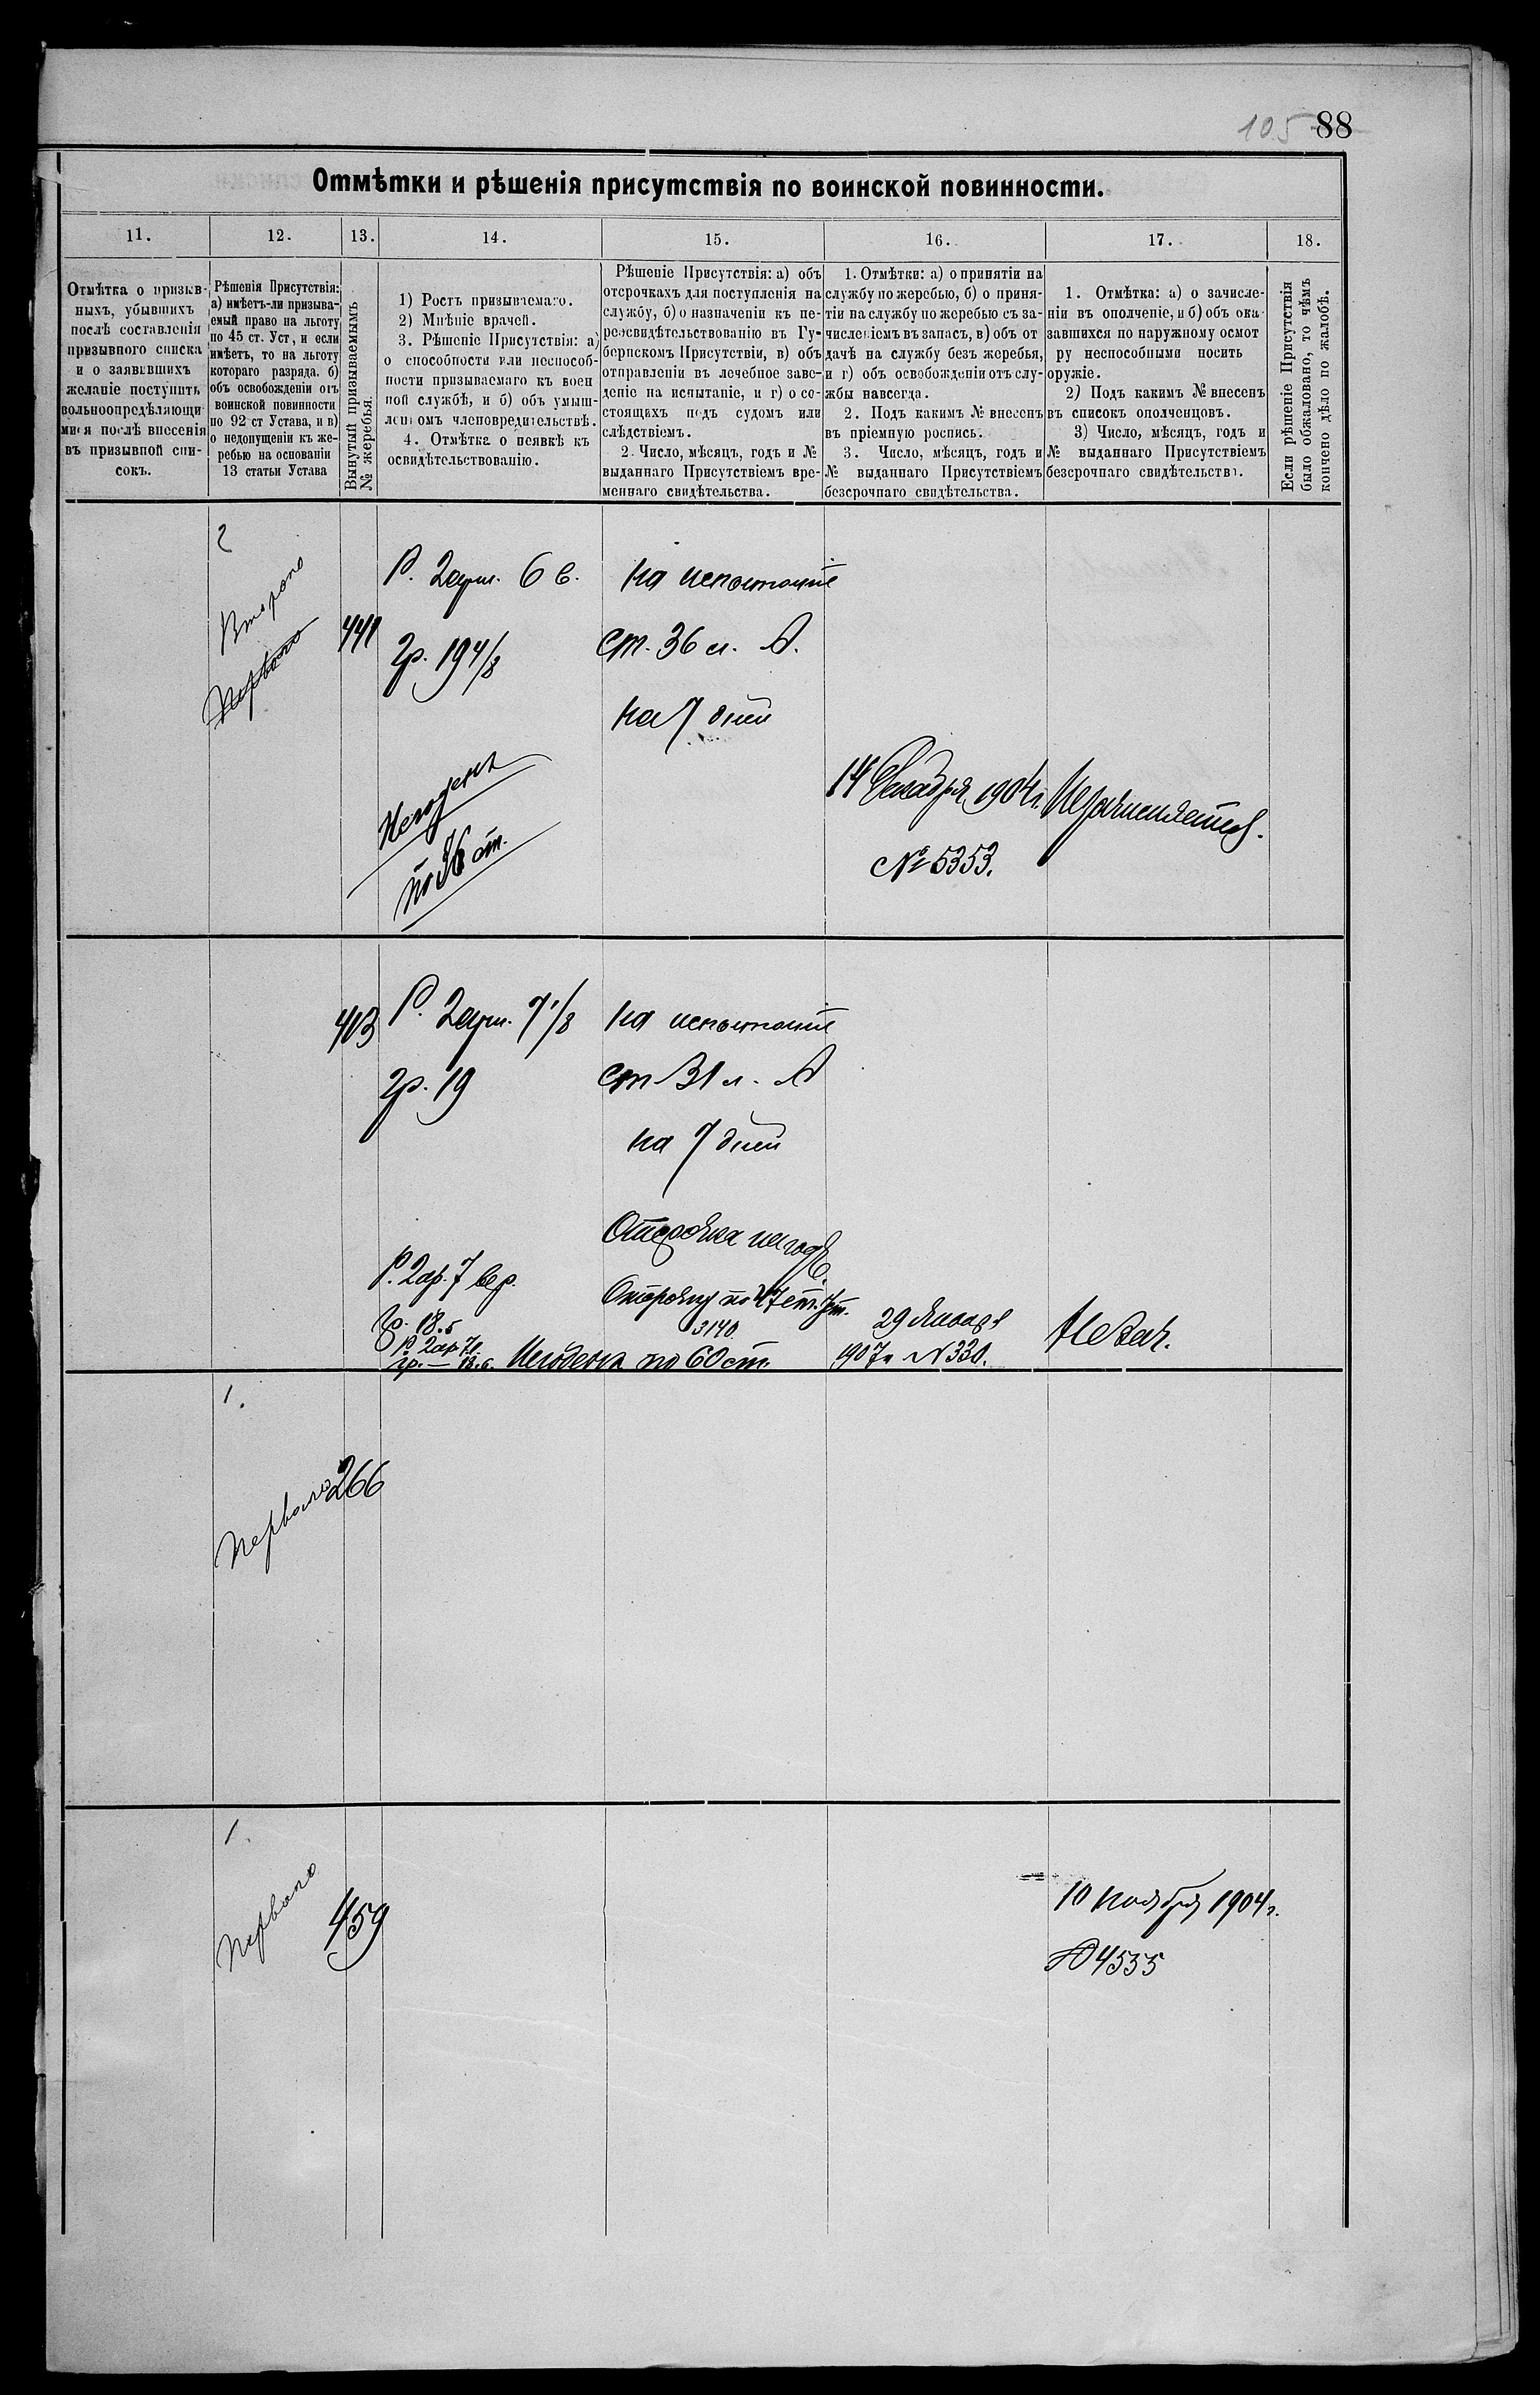 105 88
Отмѣтки и рѣшенія присутствія по воинской повинности.
11.
12.
13.
14.
15.
16.
17.
18.
Отмѣтка о призыв-
ныхъ, убывшихъ
послѣ составленія
призывного списка
и о заявившихъ
желаніе поступить
вольноопредѣляющи
мися послѣ внесенія
въ призывной спи-
сокъ.
Рѣшенія Присутствія:
а) имѣетъ-ли призыва-
емый право на льготу
по 45 ст. Уст, и если
имѣетъ, то на льготу
котораго разряда. б)
объ освобожденіи отъ
воинской повинности
по 92 ст Устава, и в)
о недопущеніи къ же-
ребью на основаніи
13 статьи Устава
Вынутый призываемымъ
№ жеребья.
1) Ростъ призываемаго.
2) Мнѣніе врачей.
3. Рѣшеніе Присутствія: а)
о способности или неспособ-
ности призываемаго къ воен
ной службѣ, и б) объ умыш-
леномъ членовредительствѣ.
4. Отмѣтка о неявкѣ къ
освидѣтельствованію.
Рѣшеніе Присутствія: а) объ
отсрочкахъ для поступленія на
службу, б) о назначеніи къ пе-
реосвидѣтельствованію въ Гу-
бернскомъ Присутствіи, в) объ
отправленіи въ лечебное заве-
деніе на испытаніе, и г) о со-
стоящихъ подъ судомъ или
слѣдствіемъ.
2. Число, мѣсяцъ, годъ и №
выданнаго Присутствіемъ вре-
меннаго свидѣтельства.
1. Отмѣтки: а) о принятіи на
службу по жеребью, б) о приня-
тіи на службу по жеребью съ за-
численіемъ въ запасъ, в) объ от
дачѣ на службу безъ жеребья,
и г) объ освобожденіи отъ слу-
жбы навсегда.
2. Подъ какимъ № внесенъ
въ пріемную роспись.
3. Число, мѣсяцъ, годъ и
№ выданнаго Присутствіемъ
безсрочнаго свидѣтельства.
1. Отмѣтка: а) о зачисле-
ніи въ ополченіе, и б) объ ока-
завшихся по наружному осмот
ру неспособными носить
оружіе.
2) Подъ какимъ № внесенъ
въ списокъ ополченцовъ.
3) Число, мѣсяцъ, годъ и
№ выданнаго Присутствіемъ
безсрочнаго свидѣтельства.
Если рѣшеніе Присутствія
было обжаловано, то чѣмъ
кончено дѣло по жалобѣ.
2
Второго
Перваго
441
Р. 2арш. 6 в.
Гр. 19 4/8
Негоденъ
по 36 ст.
на испытаніе
ст. 36 л. А.
на 7 дней
14 Декабря 1904 г.
№ 5353.
Незачисляется.
403
Р. 2арш. 7 1/8
Гр. 19
Р. 2ар. 7 вер.
Гр. 18.5
Р 2ар 7в.
гр. — 18.6. Негоденъ по 60 ст.
на испытаніе
ст 31 л. А
на 7 дней
Отсрочка на годъ
Отсрочку по 47 ст. Уст.
3140.
29 Января
1907 г № 330.
Не зач.
1.
Перваго
266
1.
Перваго
459
10 ноября 1904 г.
№ 4535